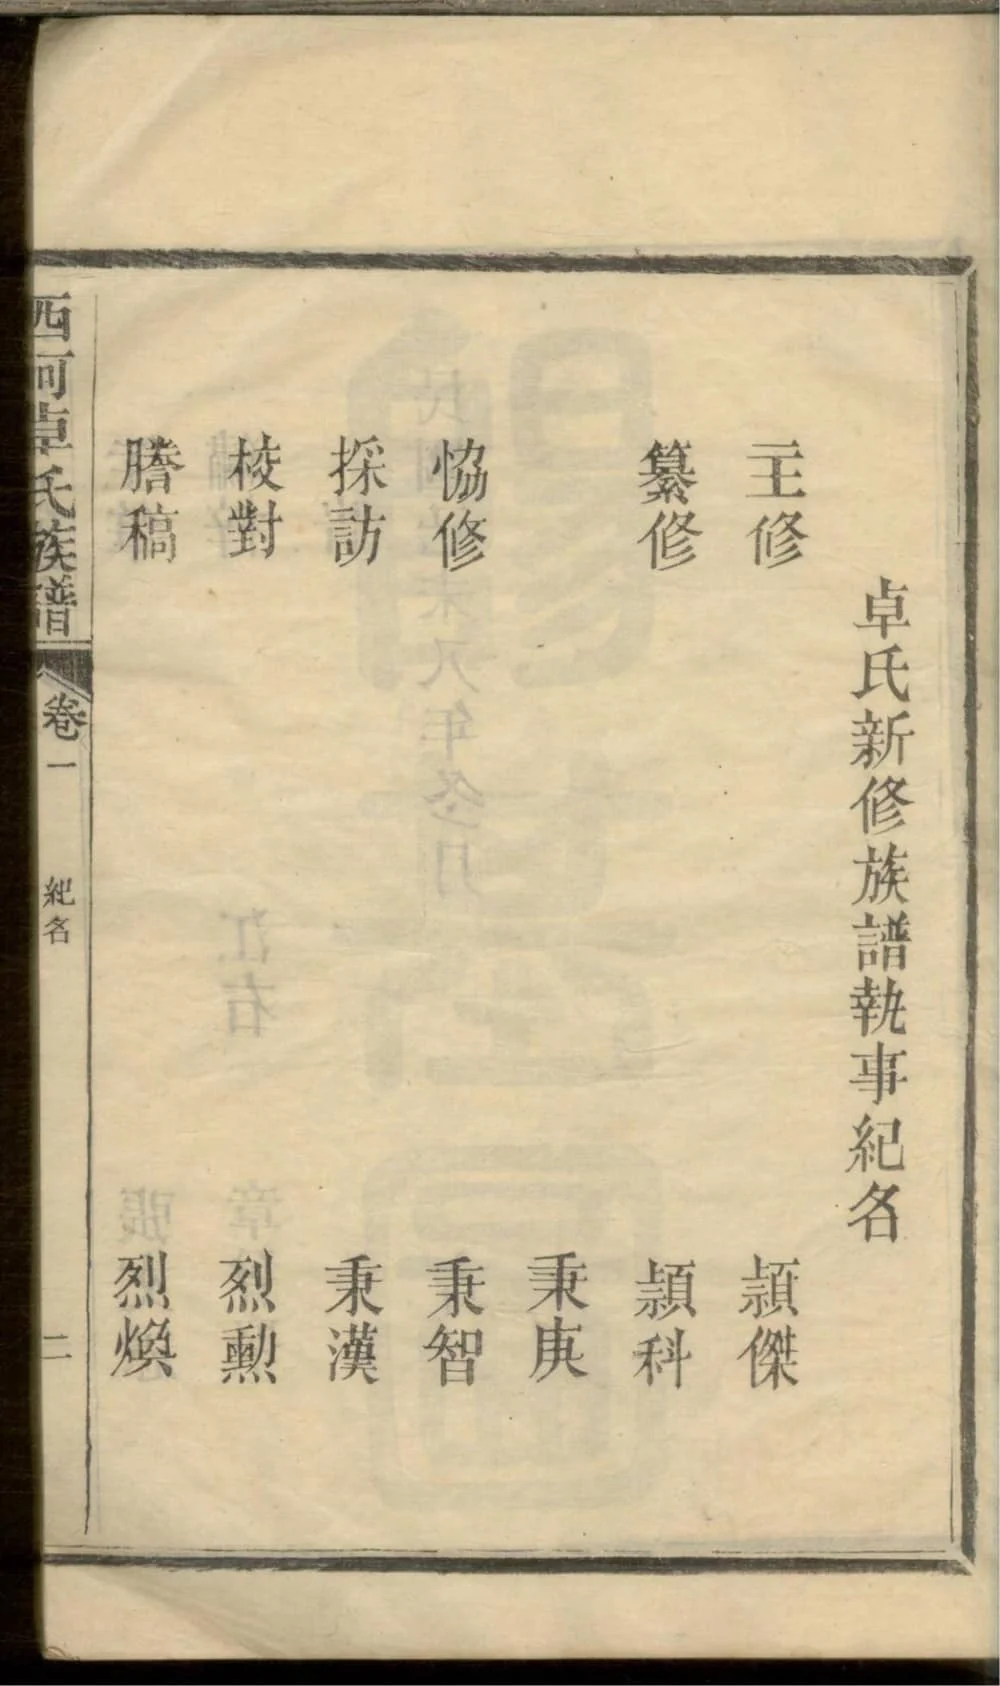 卓氏新修族譜執事紀名
主修 頴傑
纂修 頴科
秉庚
恊修 秉智
採訪 秉漢
校對 烈勳
謄稿 烈煥
西河卓氏族譜 卷一 紀名 二